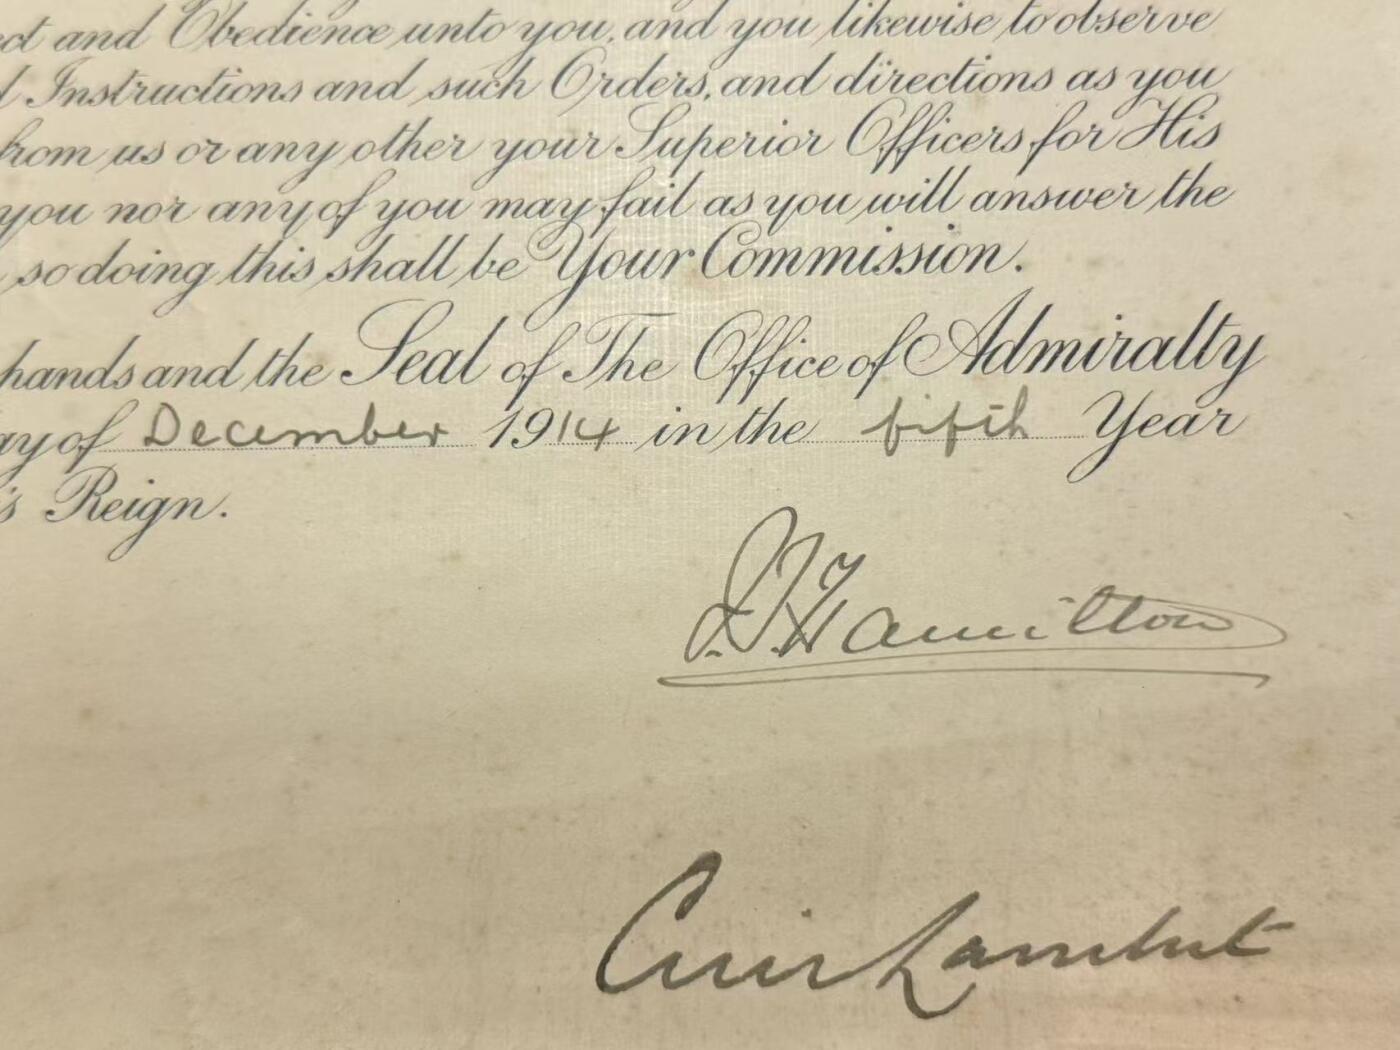 ct and Obedience unto you, and you likewise to observe
d Instructions and such Orders, and directions as you
from us or any other your Superior Officers for His
you nor any of you may fail as you will answer the
so doing this shall be Your Commission.
hands and the Seal of The Office of Admiralty
ay of December 1914 in the fifth Year
's Reign.
F. T. Hamilton
Cecil Lambert